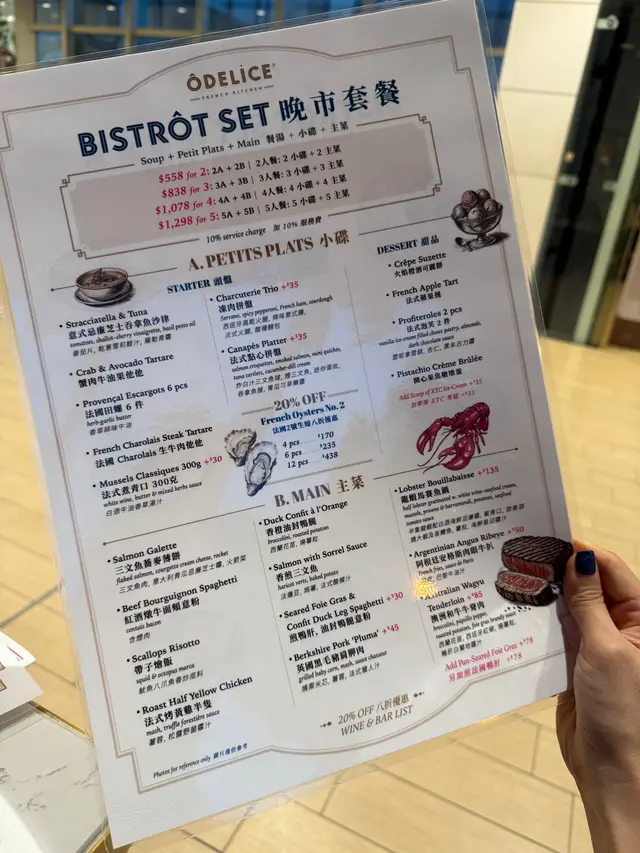 ÔDELICE
FRENCH KITCHEN
BISTRÔT SET 晚市套餐
Soup + Petit Plats + Main 餐湯 + 小碟 + 主菜
$558 for 2: 2A + 2B | 2人餐: 2 小碟 + 2 主菜
$838 for 3: 3A + 3B | 3人餐: 3 小碟 + 3 主菜
$1,078 for 4: 4A + 4B | 4人餐: 4 小碟 + 4 主菜
$1,298 for 5: 5A + 5B | 5人餐: 5 小碟 + 5 主菜
10% service charge 加 10% 服務費
A. PETITS PLATS 小碟
STARTER 頭盤
• Stracciatella & Tuna
意式忌廉芝士吞拿魚沙律
tomatoes, shallot-cherry vinaigrette, basil pesto oil
• Crab & Avocado Tartare
蟹肉牛油果他他
• Provençal Escargots 6 pcs
法國田螺 6 件
herb-garlic butter
香草蒜味牛油
• French Charolais Steak Tartare
法國 Charolais 生牛肉他他
• Mussels Classiques 300g +$30
法式煮青口 300克
white wine, butter & mixed herbs sauce
白酒牛油香草濃汁
• Charcuterie Trio +$35
凍肉拼盤
Serrano, spicy pepperoni, French ham, sourdough
西班牙風乾火腿, 辣味意式腸,
法式火腿, 酸種麵包
• Canapés Platter +$35
法式點心拼盤
salmon croquettes, smoked salmon, mini quiches,
tuna tartlets, cucumber-dill cream
炸白汁三文魚球, 煙三文魚, 迷你蛋批,
吞拿魚撻, 青瓜刁草忌廉
20% OFF
French Oysters No. 2
法國2號生蠔八折優惠
4 pcs $170
6 pcs $235
12 pcs $438
DESSERT 甜品
• Crêpe Suzette
火焰橙酒可麗餅
• French Apple Tart
法式蘋果撻
• Profiteroles 2 pcs
法式泡芙 2 件
vanilla ice-cream filled choux pastry, almonds,
dark chocolate sauce
雲呢拿雪糕, 杏仁, 黑朱古力醬
• Pistachio Crème Brûlée
開心果焦糖燉蛋
Add Scoop of XTC Ice-Cream +$35
加單球 XTC 雪糕 +$35
B. MAIN 主菜
• Salmon Galette
三文魚蕎麥薄餅
flaked salmon, courgette cream cheese, rocket
三文魚肉, 意大利青瓜忌廉芝士醬, 火箭菜
• Beef Bourguignon Spaghetti
紅酒燉牛面頰意粉
contain bacon
含煙肉
• Scallops Risotto
帶子燴飯
squid & octopus marca
魷魚八爪魚香炒底料
• Roast Half Yellow Chicken
法式烤黃雞半隻
mash, truffle forestière sauce
薯蓉, 松露野菌醬汁
• Duck Confit à l'Orange
香橙油封鴨腿
broccolini, roasted potatoes
西蘭花苗, 燒薯粒
• Salmon with Sorrel Sauce
香煎三文魚
haricot verts, baked potato
• Seared Foie Gras &
Confit Duck Leg Spaghetti +$30
煎鴨肝, 油封鴨腿意粉
• Berkshire Pork 'Pluma' +$45
英國黑毛豬肩胛肉
grilled baby corn, mash, sauce chasseur
燒粟米芯, 薯蓉, 法式獵人汁
• Lobster Bouillabaisse +$135
龍蝦馬賽魚鍋
half lobster gratinated w. white wine-seafood cream,
mussels, prawns & barramundi, potatoes, seafood
tomato sauce
• Argentinian Angus Ribeye +$50
阿根廷安格斯肉眼牛扒
French fries, sauce de Paris
巴黎牛油汁
Australian Wagyu
Tenderloin +$85
澳洲和牛牛背肉
broccolini, piquillo pepper,
roasted potatoes, foie gras brandy sauce
西蘭花苗, 西班牙紅椒, 燒薯粒,
鴨肝白蘭地醬汁
Add Pan-Seared Foie Gras +$78
另加煎法國鴨肝 +$78
20% OFF 八折優惠
WINE & BAR LIST
Photos for reference only 圖片僅供參考